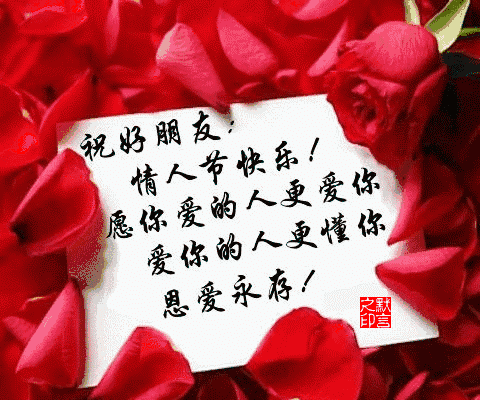 祝好朋友:
情人节快乐!
愿你爱的人更爱你
爱你的人更懂你
恩爱永存!
默言之印